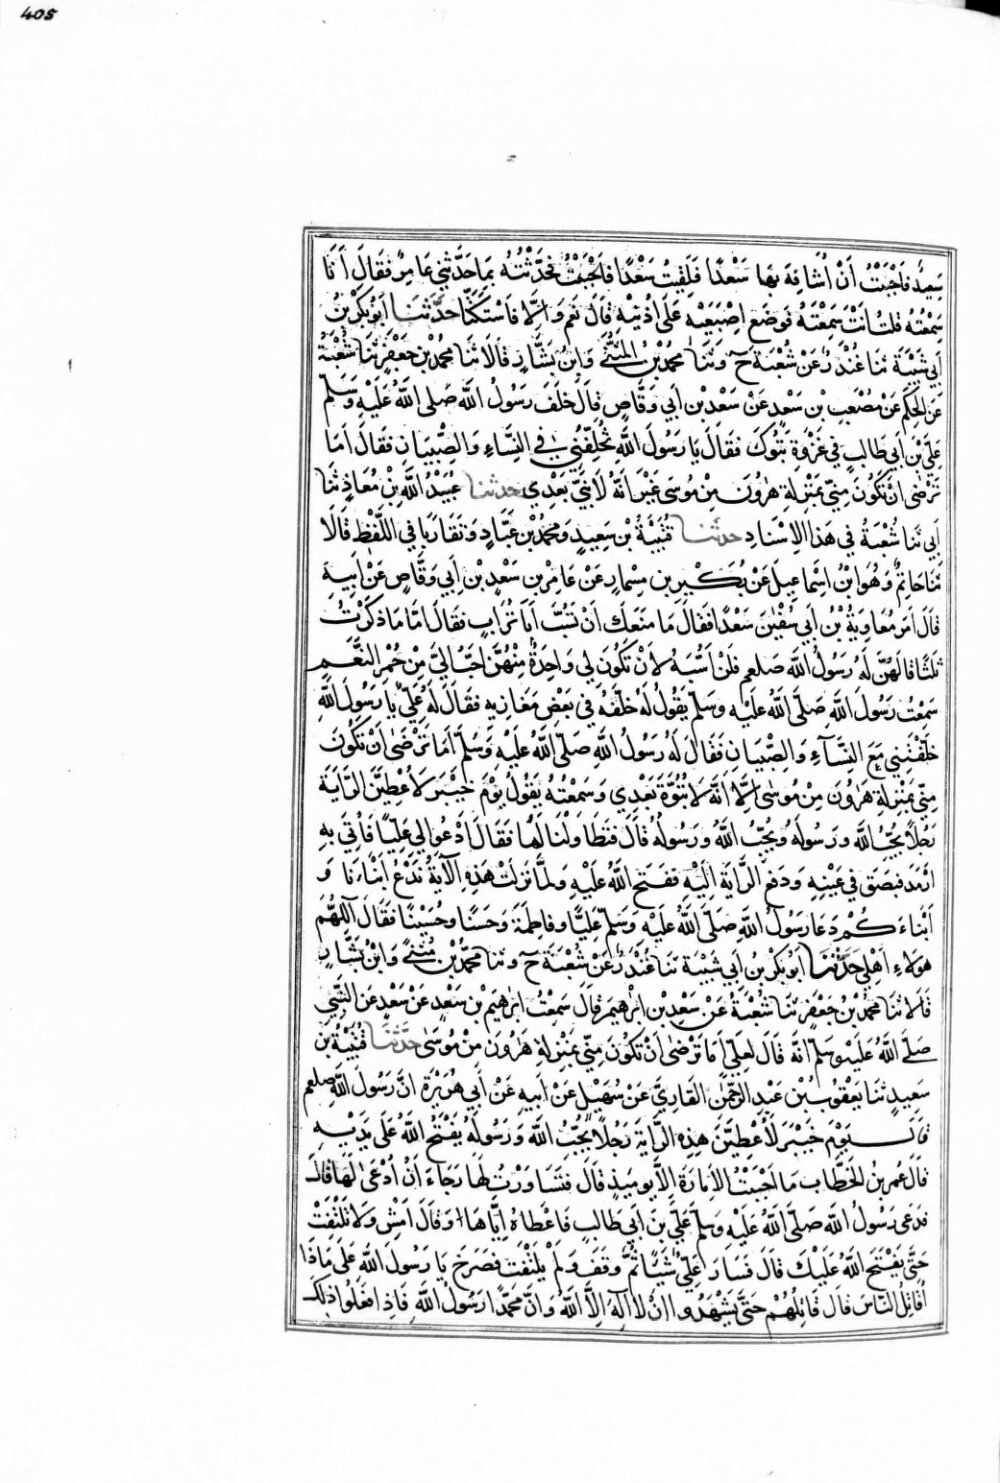 405
سَعِيدٌ فَاَحْبَبْتُ اَنْ اُشَافِهَ بِهَا سَعْدًا فَلَقِيتُ سَعْدًا فَحَدَّثْتُهُ بِمَا حَدَّثَنِي عَامِرٌ فَقَالَ اَنَا
سَمِعْتُهُ قُلْتُ اَنْتَ سَمِعْتَهُ فَوَضَعَ اِصْبَعَيْهِ عَلَى اُذُنَيْهِ قَالَ نَعَمْ وَاِلَّا فَاسْتَكَّتَا حَدَّثَنَا اَبُو بَكْرِ بْنُ
اَبِي شَيْبَةَ ثَنَا غُنْدَرٌ عَنْ شُعْبَةَ ح وَثَنَا مُحَمَّدُ بْنُ الْمُثَنَّى وَابْنُ بَشَّارٍ قَالَا ثَنَا مُحَمَّدُ بْنُ جَعْفَرٍ ثَنَا شُعْبَةُ
عَنِ الْحَكَمِ عَنْ مُصْعَبِ بْنِ سَعْدٍ عَنْ سَعْدِ بْنِ اَبِي وَقَّاصٍ قَالَ خَلَّفَ رَسُولُ اللهِ صَلَّى اللهُ عَلَيْهِ وَسَلَّمَ
عَلِيَّ بْنَ اَبِي طَالِبٍ فِي غَزْوَةِ تَبُوكَ فَقَالَ يَا رَسُولَ اللهِ تُخَلِّفُنِي فِي النِّسَاءِ وَالصِّبْيَانِ فَقَالَ اَمَا
تَرْضَى اَنْ تَكُونَ مِنِّي بِمَنْزِلَةِ هٰرُونَ مِنْ مُوسَى غَيْرَ اَنَّهُ لَا نَبِيَّ بَعْدِي حدثنا عُبَيْدُ اللهِ بْنُ مُعَاذٍ ثَنَا
اَبِي ثَنَا شُعْبَةُ فِي هَذَا الْاِسْنَادِ حدثنا قُتَيْبَةُ بْنُ سَعِيدٍ وَمُحَمَّدُ بْنُ عَبَّادٍ وَتَقَارَبَا فِي اللَّفْظِ قَالَا
ثَنَا حَاتِمٌ وَهُوَ ابْنُ اِسْمَاعِيلَ عَنْ بُكَيْرِ بْنِ مِسْمَارٍ عَنْ عَامِرِ بْنِ سَعْدِ بْنِ اَبِي وَقَّاصٍ عَنْ اَبِيهِ
قَالَ اَمَرَ مُعَاوِيَةُ بْنُ اَبِي سُفْيٰنَ سَعْدًا فَقَالَ مَا مَنَعَكَ اَنْ تَسُبَّ اَبَا تُرَابٍ فَقَالَ اَمَّا مَا ذَكَرْتُ
ثَلٰثًا قَالَهُنَّ لَهُ رَسُولُ اللهِ صلعم فَلَنْ اَسُبَّهُ لَاَنْ تَكُونَ لِي وَاحِدَةٌ مِنْهُنَّ اَحَبُّ اِلَيَّ مِنْ حُمْرِ النَّعَمِ
سَمِعْتُ رَسُولَ اللهِ صَلَّى اللهُ عَلَيْهِ وَسَلَّمَ يَقُولُ لَهُ خَلَّفَهُ فِي بَعْضِ مَغَازِيهِ فَقَالَ لَهُ عَلِيٌّ يَا رَسُولَ اللهِ
خَلَّفْتَنِي مَعَ النِّسَآءِ وَالصِّبْيَانِ فَقَالَ لَهُ رَسُولُ اللهِ صَلَّى اللهُ عَلَيْهِ وَسَلَّمَ اَمَا تَرْضَى اَنْ تَكُونَ
مِنِّي بِمَنْزِلَةِ هٰرُونَ مِنْ مُوسٰى اِلَّا اَنَّهُ لَا نُبُوَّةَ بَعْدِي وَسَمِعْتُهُ يَقُولُ يَوْمَ خَيْبَرَ لَاُعْطِيَنَّ الرَّايَةَ
رَجُلًا يُحِبُّ اللهَ وَرَسُولَهُ وَيُحِبُّهُ اللهُ وَرَسُولُهُ قَالَ فَتَطَاوَلْنَا لَهَا فَقَالَ ادْعُوا لِي عَلِيًّا فَاُتِيَ بِهِ
اَرْمَدَ فَبَصَقَ فِي عَيْنِهِ وَدَفَعَ الرَّايَةَ اِلَيْهِ فَفَتَحَ اللهُ عَلَيْهِ وَلَمَّا نَزَلَتْ هَذِهِ الْآيَةُ نَدْعُ اَبْنَاءَنَا وَ
اَبْنَاءَكُمْ دَعَا رَسُولُ اللهِ صَلَّى اللهُ عَلَيْهِ وَسَلَّمَ عَلِيًّا وَفَاطِمَةَ وَحَسَنًا وَحُسَيْنًا فَقَالَ اللّٰهُمَّ
هَوُلَاءِ اَهْلِي حَدَّثَنَا اَبُو بَكْرِ بْنُ اَبِي شَيْبَةَ ثَنَا غُنْدَرٌ عَنْ شُعْبَةَ ح وَثَنَا مُحَمَّدُ بْنُ مُثَنَّى وَابْنُ بَشَّارٍ
قَالَا ثَنَا مُحَمَّدُ بْنُ جَعْفَرٍ ثَنَا شُعْبَةُ عَنْ سَعْدِ بْنِ اِبْرٰهِيمَ قَالَ سَمِعْتُ اِبْرٰهِيمَ بْنَ سَعْدٍ عَنْ سَعْدٍ عَنِ النَّبِيِّ
صَلَّى اللهُ عَلَيْهِ وَسَلَّمَ اَنَّهُ قَالَ لِعَلِيٍّ اَمَا تَرْضٰى اَنْ تَكُونَ مِنِّي بِمَنْزِلَةِ هٰرُونَ مِنْ مُوسٰى حَدَّثَنَا قُتَيْبَةُ بْنُ
سَعِيدٍ ثَنَا يَعْقُوبُ بْنُ عَبْدِ الرَّحْمٰنِ الْقَارِيَّ عَنْ سُهَيْلٍ عَنْ اَبِيهِ عَنْ اَبِي هُرَيْرَةَ اَنَّ رَسُولَ اللهِ صلعم
قَالَ يَوْمَ خَيْبَرَ لَاُعْطِيَنَّ هَذِهِ الرَّايَةَ رَجُلًا يُحِبُّ اللهَ وَرَسُولَهُ يَفْتَحُ اللهُ عَلَى يَدَيْهِ
قَالَ عُمَرُ بْنُ الْخَطَّابِ مَا اَحْبَبْتُ الْاِمَارَةَ اِلَّا يَوْمَئِذٍ قَالَ فَتَسَاوَرْتُ لَهَا رَجَاءَ اَنْ اُدْعَى لَهَا قَالَ
فَدَعَى رَسُولُ اللهِ صَلَّى اللهُ عَلَيْهِ وَسَلَّمَ عَلِيَّ بْنَ اَبِي طَالِبٍ فَاَعْطَاهُ اِيَّاهَا وَقَالَ امْشِ وَلَا تَلْتَفِتْ
حَتَّى يَفْتَحَ اللهُ عَلَيْكَ قَالَ فَسَارَ عَلِيٌّ شَيْئًا ثُمَّ وَقَفَ وَلَمْ يَلْتَفِتْ فَصَرَخَ يَا رَسُولَ اللهِ عَلَى مَاذَا
اُقَاتِلُ النَّاسَ قَالَ قَاتِلْهُمْ حَتَّى يَشْهَدُوا اَنْ لَا اِلٰهَ اِلَّا اللهُ وَاَنَّ مُحَمَّدًا رَسُولُ اللهِ فَاِذَا فَعَلُوا ذٰلِكَ